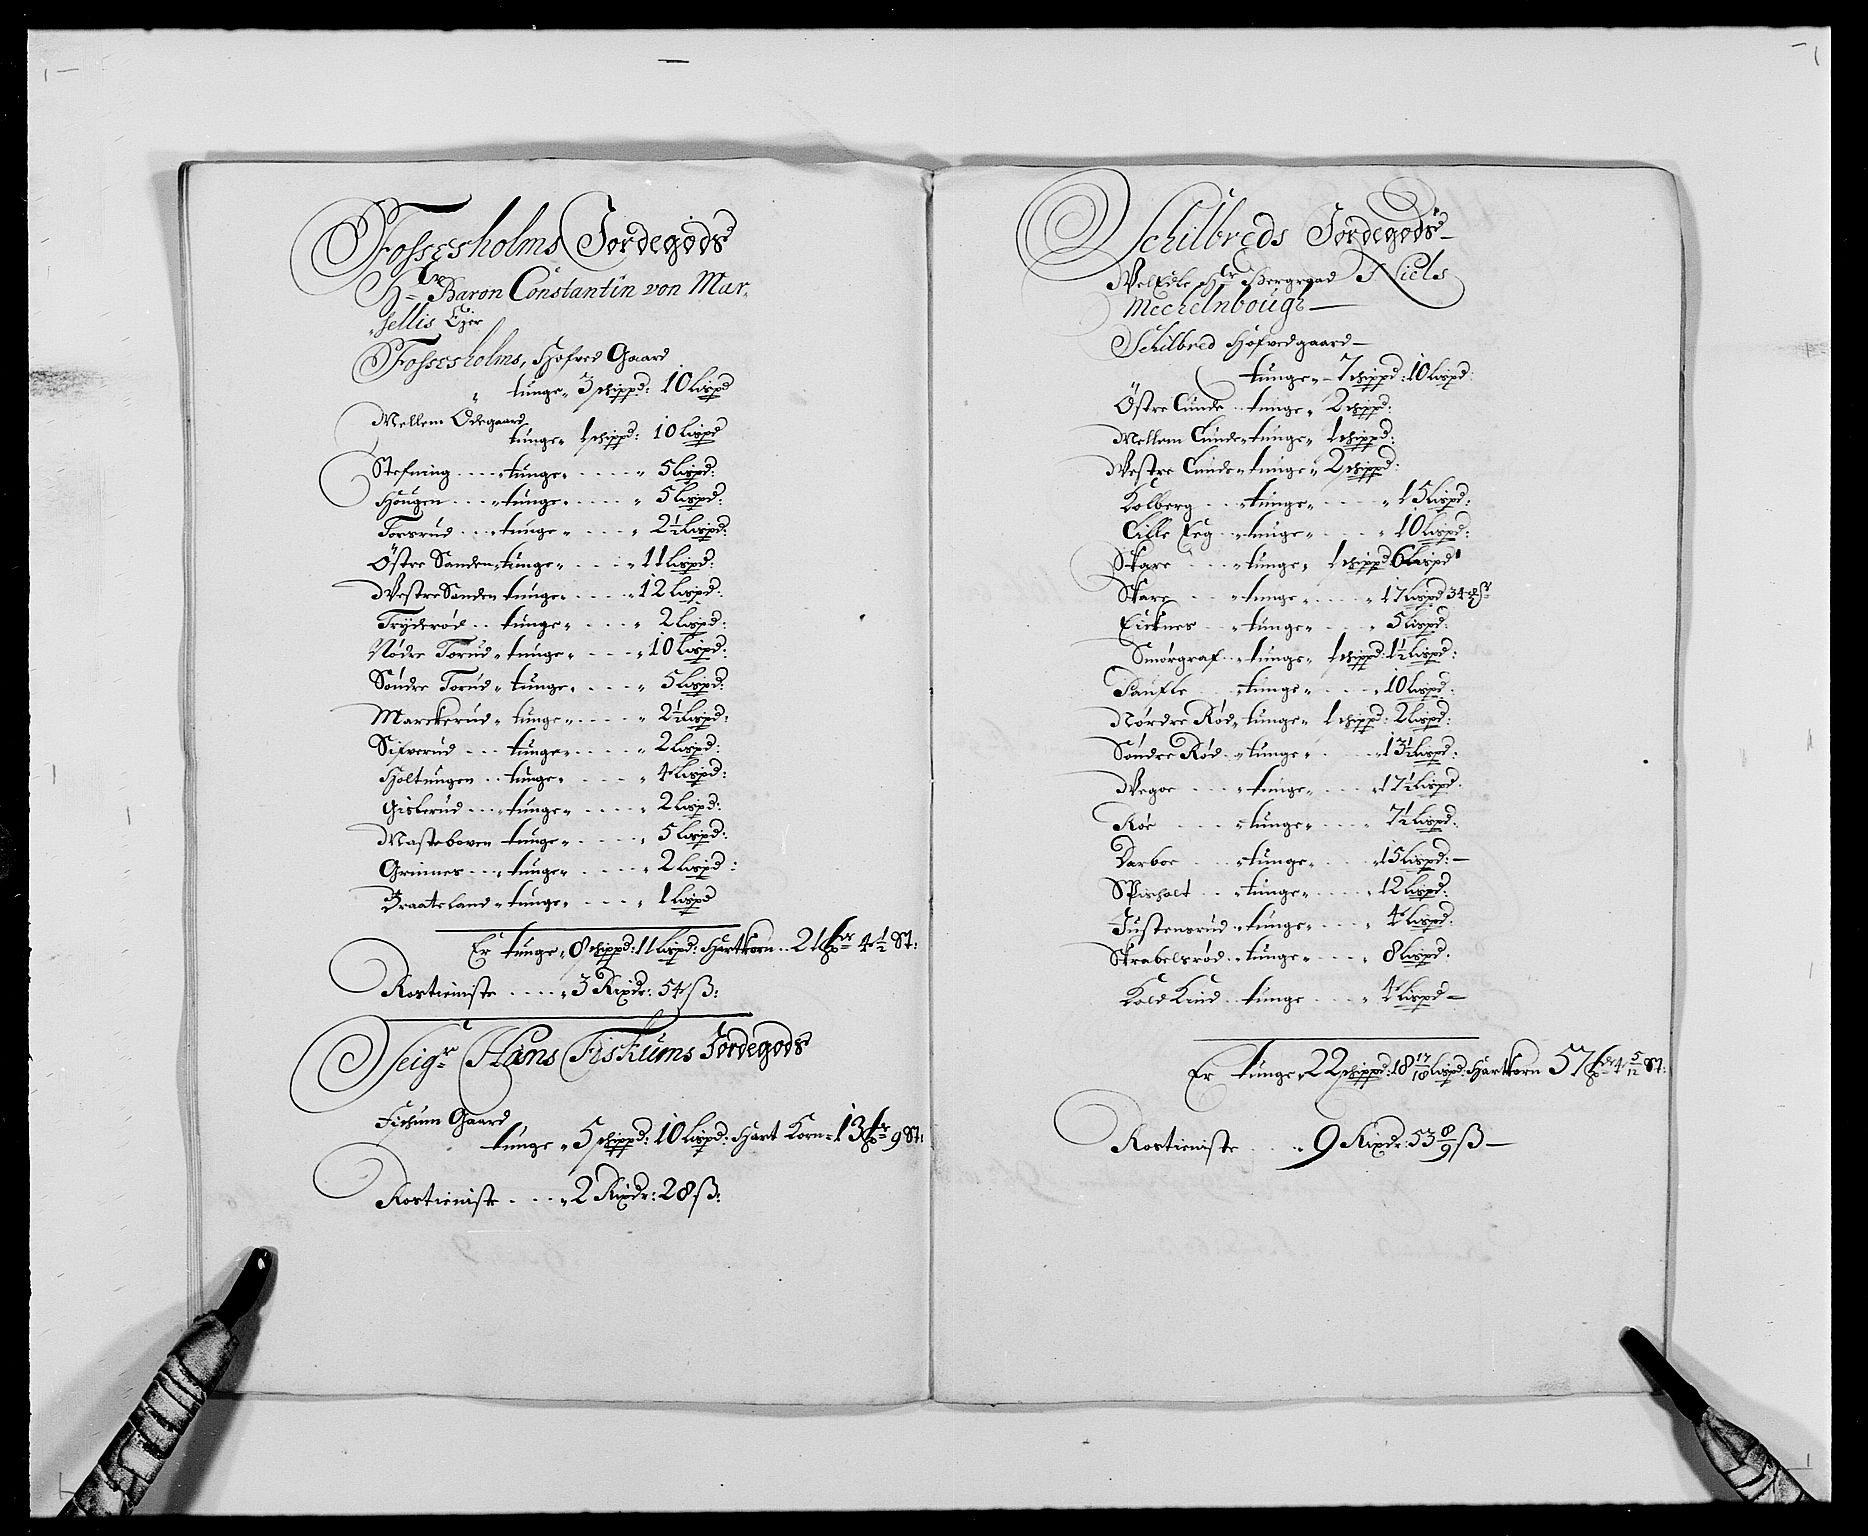 Fossesholms Jordegods
Hr Baron Constantin von Mar-
sellis Ejer
Fossesholms, Hofved Gaard
tunge „ 3 schippd: 10 Lispd
Mellem Ödegaard
tunge „ 1 schippd: 10 Lispd
Stefning .... „ tunge „ ..... „ 5 Lispd:
Hougen .... „ tunge „ ..... „ 5 Lispd:
Forsrud .... „ tunge „ .... „ 2½ Lispd:
Östre Sanden „ tunge „ .... „ 11 Lispd:
Westre Sanden tunge „ .... „ 12 Lispd:
Tryderød .. tunge „ .... „ 2 Lispd:
Nødre Torud „ tunge „ .... „ 10 Lispd:
Søndre Torud „ tunge „ .... „ 5 Lispd:
Marckerud „ tunge „ .... „ 2½ Lispd:
Sifverud .... tunge „ .... „ 2 Lispd:
Holtungen .. tunge „ .... „ 4 Lispd:
Gislerud .... tunge „ .... „ 2 Lispd:
Masteboven tunge „ .... „ 5 Lispd:
Grinnes .... tunge „ .... „ 2 Lispd:
Braateland „ tunge „ .... „ 1 Lispd
Er tunge „ 8 schippd: 11 Lispd: Hartkorn .. 21 4½ St:
Rostieniste .... „ 3 Rixdr: 54 ß:
Seigr Hans Fiskums Jordegods
Fischum Gaard
tunge „ 5 schippd: 10 Lispd: Hart Korn „ 13 9 St:
Rostieniste .... „ 2 Rixdr: 28 ß:
Schilbreds Jordegods
WelEdle Hr Bergraad Niels
Mechelnboug
Schilbred Hofvedgaard
tunge „ 7 schippd: 10 Lispd:
Östre Lunde .. tunge „ 2 schippd:
Mellem Lunde „ tunge „ 1 schippd:
Westre Lunde „ tunge „ 2 schippd:
Kolberg .... „ tunge „ .... „ 15 Lispd:
Lille Eeg .. „ tunge „ .... „ 10 Lispd:
Skare .... „ tunge „ 1 schippd 6 Lispd
Skare .... „ tunge „ .... „ 17 Lispd
Eicknes .. „ tunge „ .... „ 5 Lispd:
Smørgraf .. „ tunge „ 1 schippd: 1½ Lispd:
Saufle .... „ tunge „ .... „ 10 Lispd:
Nørdre Rød „ tunge „ 1 schippd: 2 Lispd:
Søndre Rød .. „ tunge „ .... „ 13½ Lispd:
Wegoe .... „ tunge „ .... „ 17½ Lispd.
Roe .... „ tunge „ .... „ 7½ Lispd:
Darboe .... „ tunge „ .... „ 15 Lispd:
Spisholt .. „ tunge „ .... „ 12 Lispd:
Justensrud „ tunge „ .... „ 4 Lispd:
Strabelsrød .. tunge „ .... „ 8 Lispd:
Kold Kind .. tunge .... „ 4 Lispd
Er tunge „ 22 schippd: 18 17/18 Lispd: Hartkorn 57 4 5/12 St:
Rostieniste .... „ 9 Rixdr: 53 8/9 ß